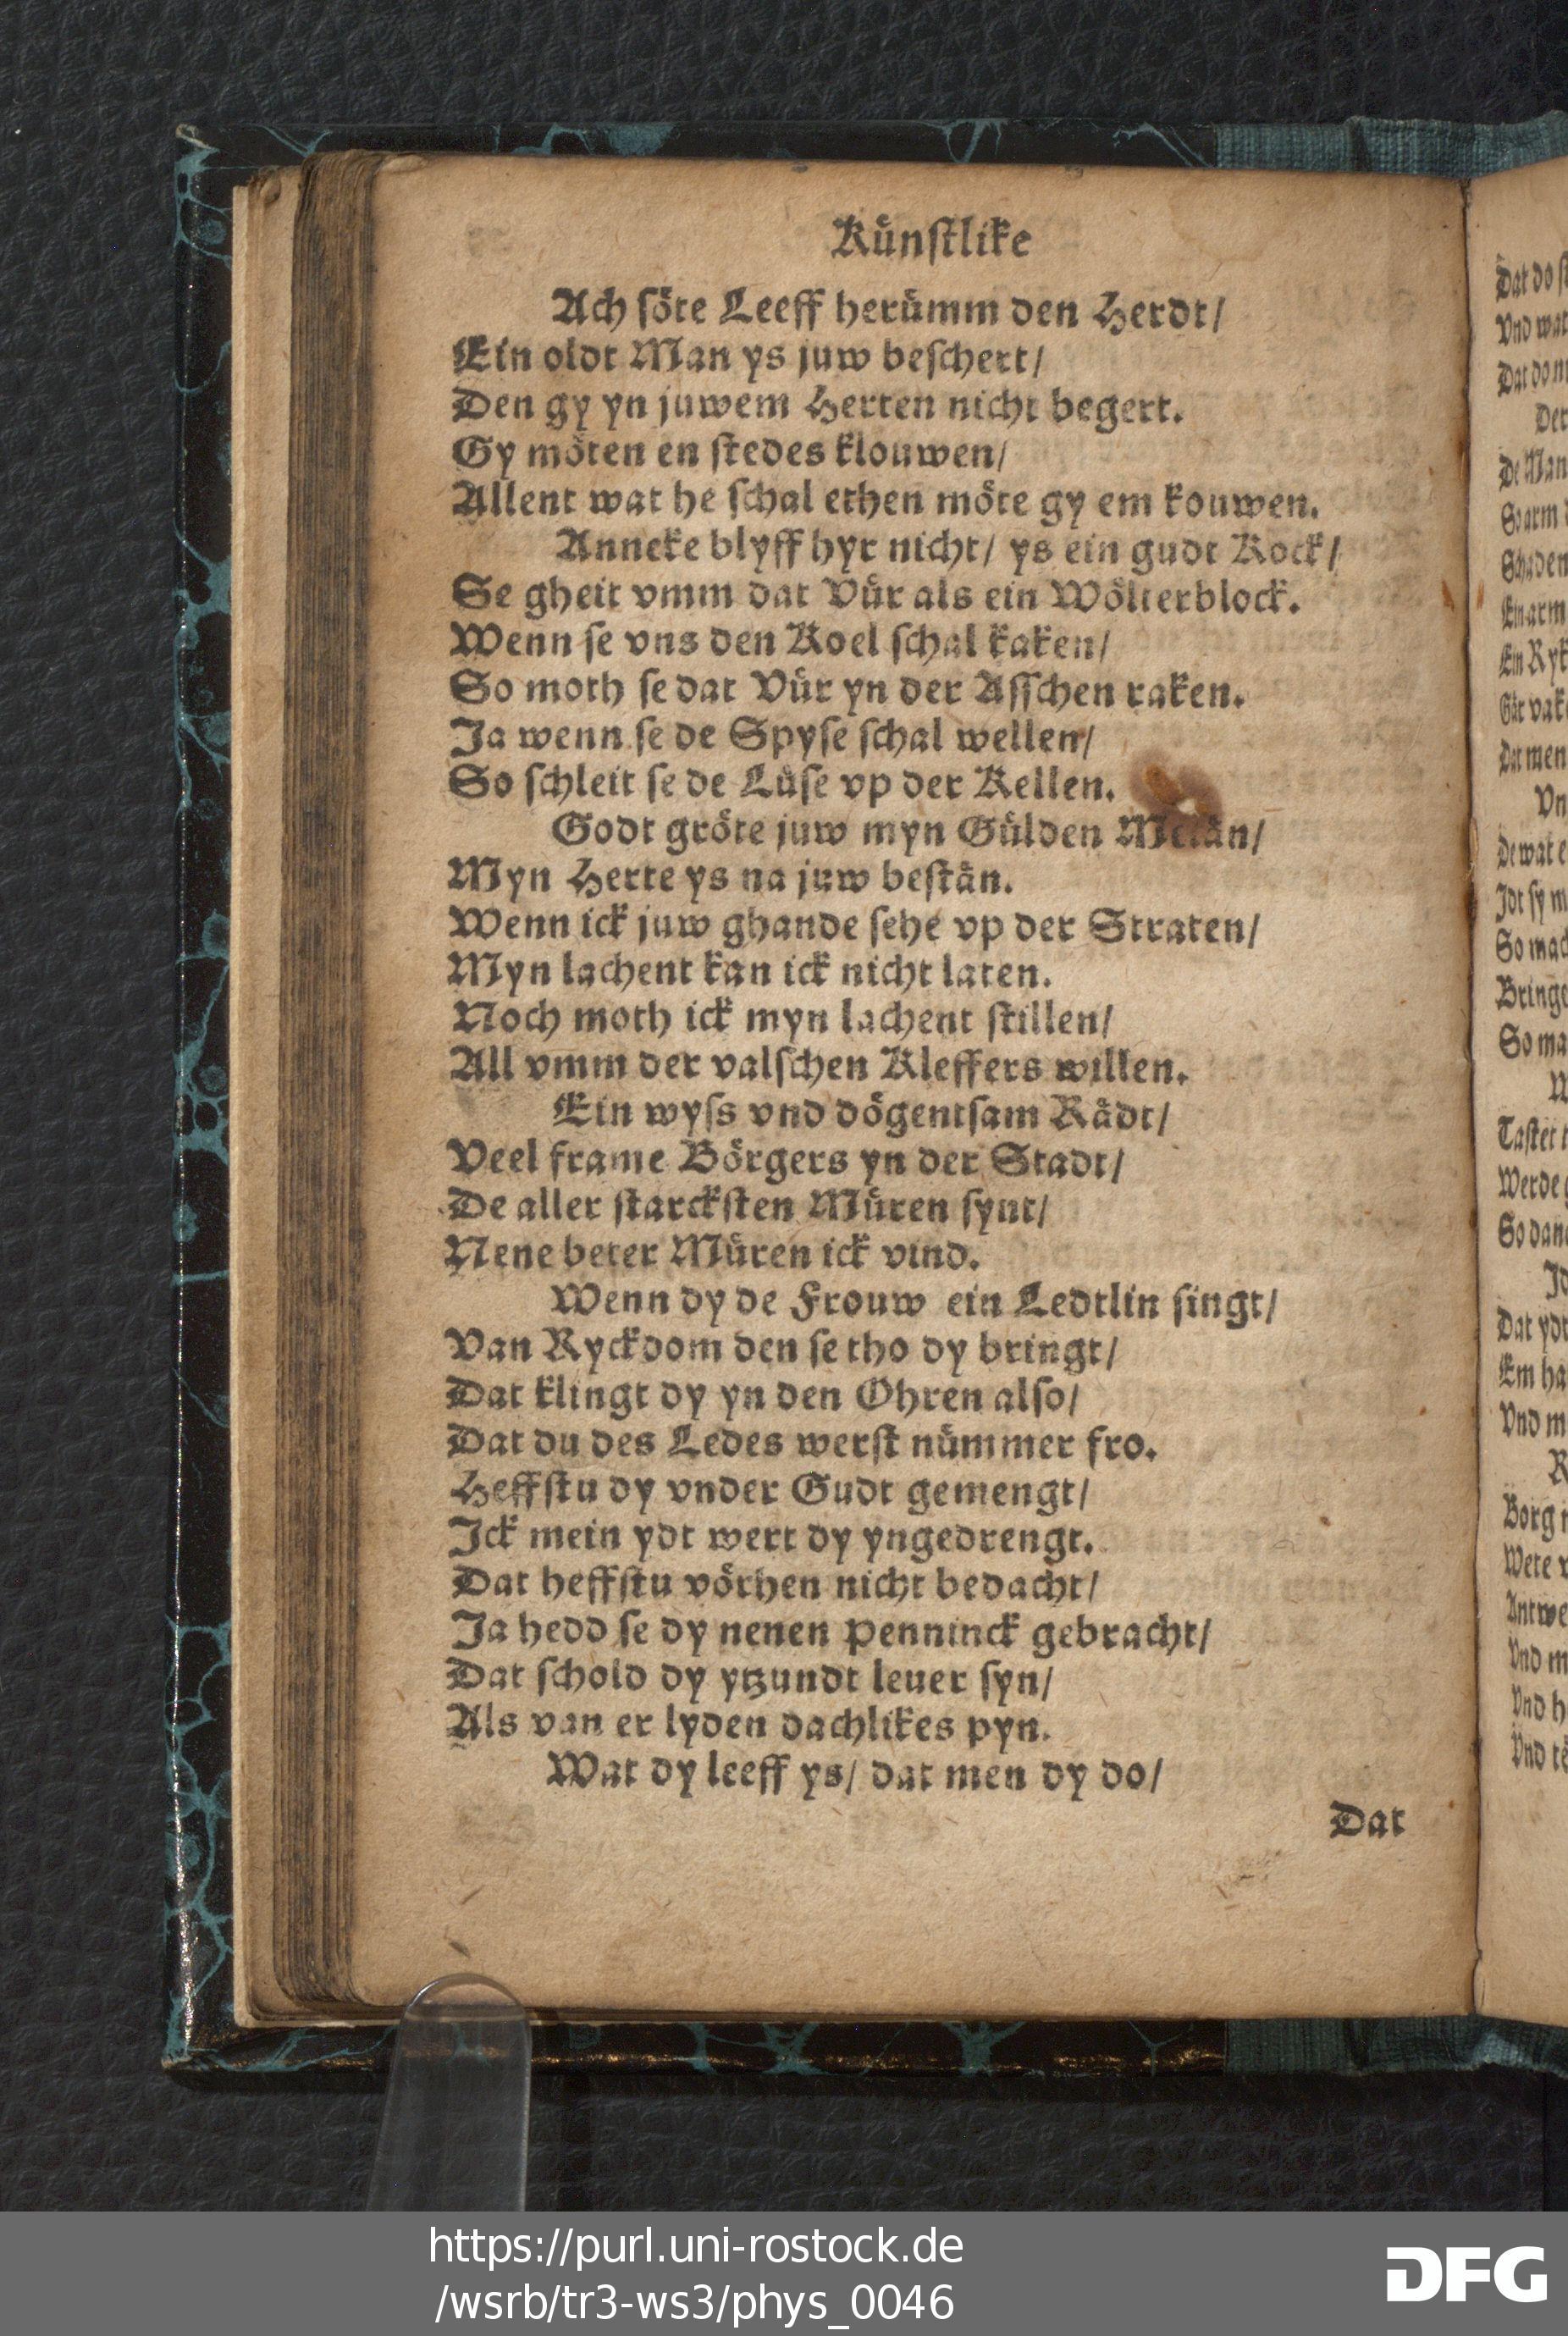 Künſtlike
Ach ſöte Leeff herümm den Herdt/
Ein oldt Man ys juw beſchert/
Den gy yn juwem Herten nicht begert.
Gy möten en ſtedes klouwen/
Allent wat he ſchal ethen möte gy em kouwen.
Anneke blyff hyr nicht/ ys ein gudt Kock/
Se gheit vmm dat Vür als ein Wölterblock.
Wenn ſe vns den Koel ſchal kaken/
So moth ſe dat Vür yn der Aſſchen raken.
Ja wenn ſe de Spyſe ſchal wellen/
So ſchleit ſe de Lüſe vp der Kellen.
Godt gröte juw myn Gülden
Myn Herte ys na juw beſtän.
Wenn ick juw ghande ſehe vp der Straten/
Myn lachent kan ick nicht laten.
Noch moth ick myn lachent ſtillen/
All vmm der valſchen Kleffers willen.
Ein wyſs vnd dögentſam Rädt/
Veel frame Börgers yn der Stadt/
De aller ſtarckſten Müren ſynt/
Nene beter Müren ick vind.
Wenn dy de Frouw ein Ledtlin ſingt/
Van Ryckdom den ſe tho dy bringt/
Dat klingt dy yn den Ohren alſo/
Dat du des Ledes werſt nümmer fro.
Heffſtu dy vnder Gudt gemengt/
Ick mein ydt wert dy yngedrengt.
Dat heffſtu vörhen nicht bedacht/
Ja hedd ſe dy nenen Penninck gebracht/
Dat ſchold dy ytzundt leuer ſyn/
Als van er lyden dachlikes pyn.
Wat dy leeff ys/ dat men dy do/
Dat
https://purl.uni-rostock.de
/wsrb/tr3-ws3/phys_0046
DFG